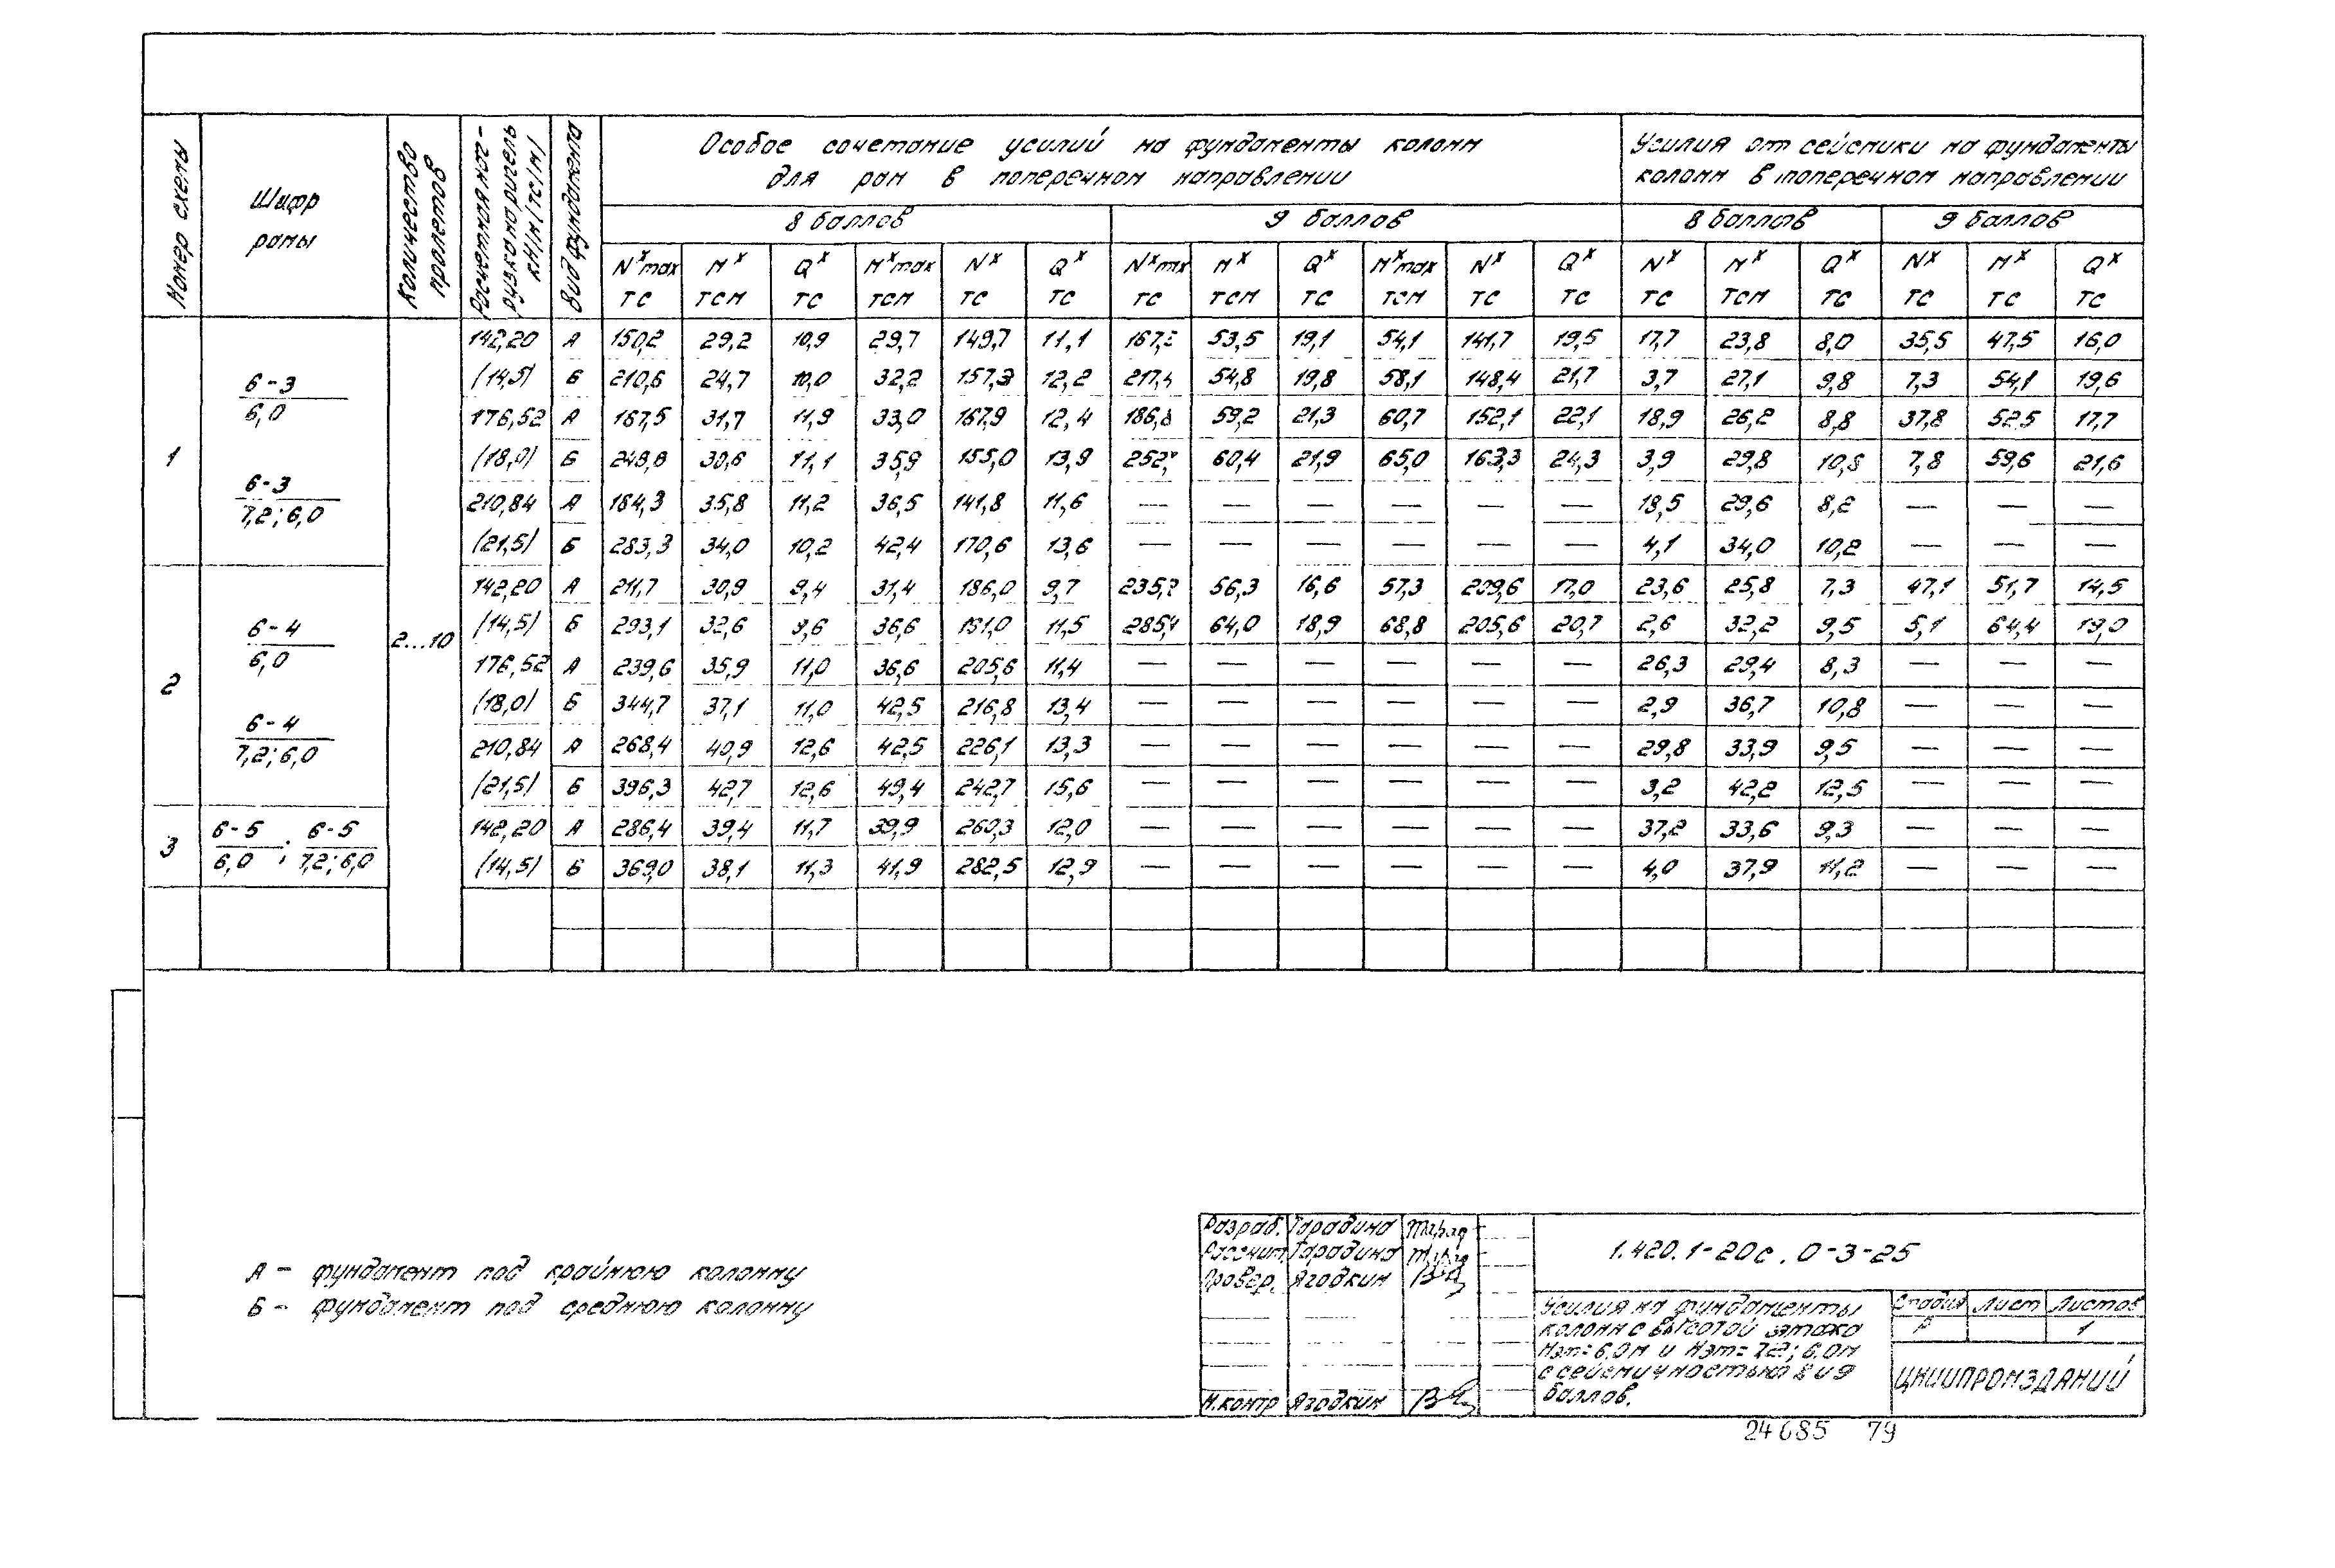 Номер схемы
Шифр
рамы
Количество
пролетов
Расчетная наг-
рузка на ригель
кН/м (тс/м)
Вид фундамента
Особое сочетание усилий на фундаменты колонн
для рам в поперечном направлении
Усилия от сейсмики на фундаменты
колонн в поперечном направлении
8 баллов 9 баллов 8 баллов 9 баллов
Nˣmax Mˣ Qˣ Mˣmax Nˣ Qˣ Nˣmax Mˣ Qˣ Mˣmax Nˣ Qˣ Nˣ Mˣ Qˣ Nˣ Mˣ Qˣ
тс тсм тс тсм тс тс тс тсм тс тсм тс тс тс тсм тс тс тс тс
142,20 А 150,2 29,2 10,9 29,7 149,7 11,1 53,5 19,1 54,1 141,7 19,5 17,7 23,8 8,0 35,5 47,5 16,0
6-3
6,0
(14,5) Б 210,6 24,7 10,0 32,2 157,3 12,2 54,8 19,8 58,1 148,4 21,7 3,7 27,1 9,8 7,3 54,1 19,6
176,52 А 167,5 31,7 11,9 33,0 167,9 12,4 59,2 21,3 60,7 152,1 22,1 18,9 26,2 8,8 37,8 52,5 17,7
1
(18,0) Б 30,6 11,1 35,9 155,0 13,9 60,4 21,9 65,0 163,3 24,3 3,9 29,8 10,8 7,8 59,6 21,6
6-3
7,2; 6,0
210,84 А 184,3 35,8 11,2 36,5 141,8 11,6 — — — — — — 18,5 29,6 8,2 — — —
(21,5) Б 283,3 34,0 10,2 42,4 170,6 13,6 — — — — — — 4,1 34,0 10,2 — — —
142,20 А 211,7 30,9 9,4 31,4 186,0 9,7 56,3 16,6 57,3 209,6 17,0 23,6 25,8 7,3 47,1 51,7 14,5
6-4
6,0
2...10
(14,5) Б 293,1 32,6 9,6 36,6 191,0 11,5 64,0 18,9 68,8 205,6 20,7 2,6 32,2 9,5 5,1 64,4 19,0
176,52 А 239,6 35,9 11,0 36,6 205,6 11,4 — — — — — — 26,3 29,4 8,3 — — —
2
(18,0) Б 344,7 37,1 11,0 42,5 216,8 13,4 — — — — — — 2,9 36,7 10,8 — — —
6-4
7,2; 6,0
210,84 А 268,4 40,9 12,6 42,5 226,1 13,3 — — — — — — 29,8 33,9 9,5 — — —
(21,5) Б 396,3 42,7 12,6 49,4 242,7 15,6 — — — — — — 3,2 42,2 12,5 — — —
3
6-5 ; 6-5
6,0 7,2; 6,0
142,20 А 286,4 39,4 11,7 39,9 260,3 12,0 — — — — — — 37,2 33,6 9,3 — — —
(14,5) Б 369,0 38,1 11,3 41,9 282,5 12,9 — — — — — — 4,0 37,9 11,2 — — —
А - фундамент под крайнюю колонну
Б - фундамент под среднюю колонну
Разраб. Тарадина
Рассчит. Тарадина
Провер. Ягодкин
Н.контр Ягодкин
1.420.1-20с.0-3-25
Усилия на фундаменты
колонн с высотой этажа
Нэт=6.0м и Нэт=7.2; 6.0м
с сейсмичностью 8 и 9
баллов.
Стадия Лист Листов
Р 1
ЦНИИПРОМЗДАНИЙ
24685 79